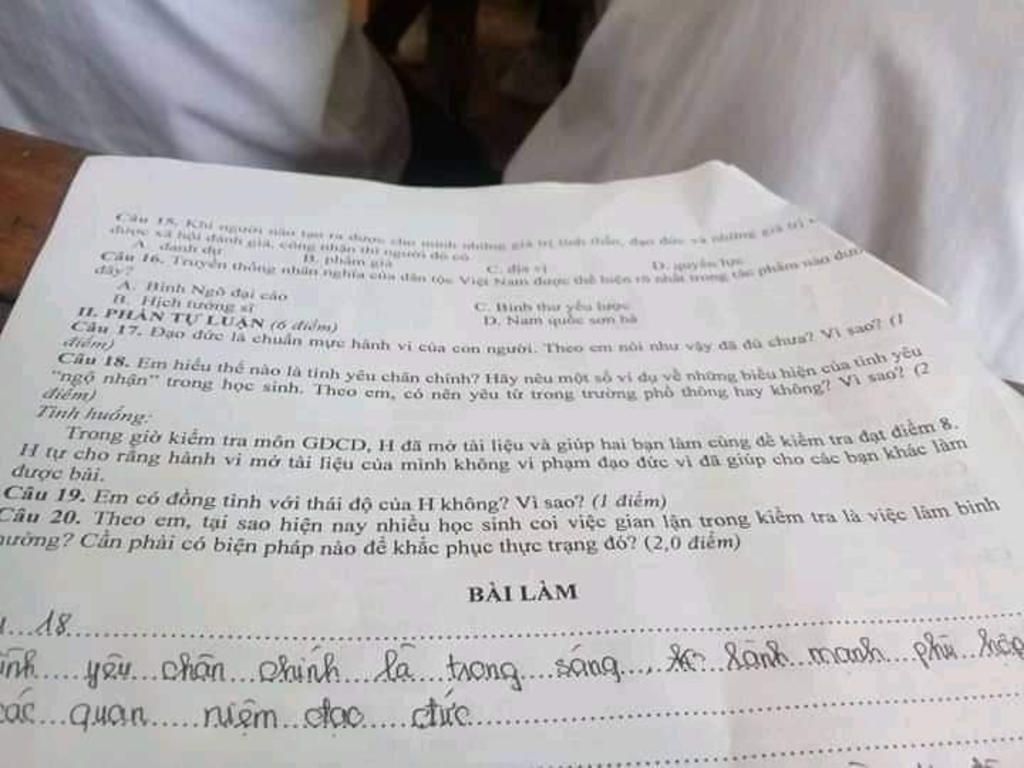 Câu 15. Khi người nào tạo ra được cho mình những giá trị tinh thần, đạo đức và những giá trị
được xã hội đánh giá, công nhận thì người đó có
A. danh dự B. phẩm giá C. địa vị D. quyền lực
Câu 16. Truyền thống nhân nghĩa của dân tộc Việt Nam được thể hiện rõ nhất trong tác phẩm nào dưới
đây?
A. Bình Ngô đại cáo C. Binh thư yếu lược
B. Hịch tướng sĩ D. Nam quốc sơn hà
II. PHẦN TỰ LUẬN (6 điểm)
Câu 17. Đạo đức là chuẩn mực hành vi của con người. Theo em nói như vậy đã đủ chưa? Vì sao? (1
điểm)
Câu 18. Em hiểu thế nào là tình yêu chân chính? Hãy nêu một số ví dụ về những biểu hiện của tình yêu
"ngộ nhận" trong học sinh. Theo em, có nên yêu từ trong trường phổ thông hay không? Vì sao? (2
điểm)
Tình huống:
Trong giờ kiểm tra môn GDCD, H đã mở tài liệu và giúp hai bạn làm cùng đề kiểm tra đạt điểm 8.
H tự cho rằng hành vi mở tài liệu của mình không vi phạm đạo đức vì đã giúp cho các bạn khác làm
được bài.
Câu 19. Em có đồng tình với thái độ của H không? Vì sao? (1 điểm)
Câu 20. Theo em, tại sao hiện nay nhiều học sinh coi việc gian lận trong kiểm tra là việc làm bình
thường? Cần phải có biện pháp nào để khắc phục thực trạng đó? (2,0 điểm)
BÀI LÀM
18
yêu chân chính là trong sáng, lành mạnh phù hợp
các quan niệm đạo đức